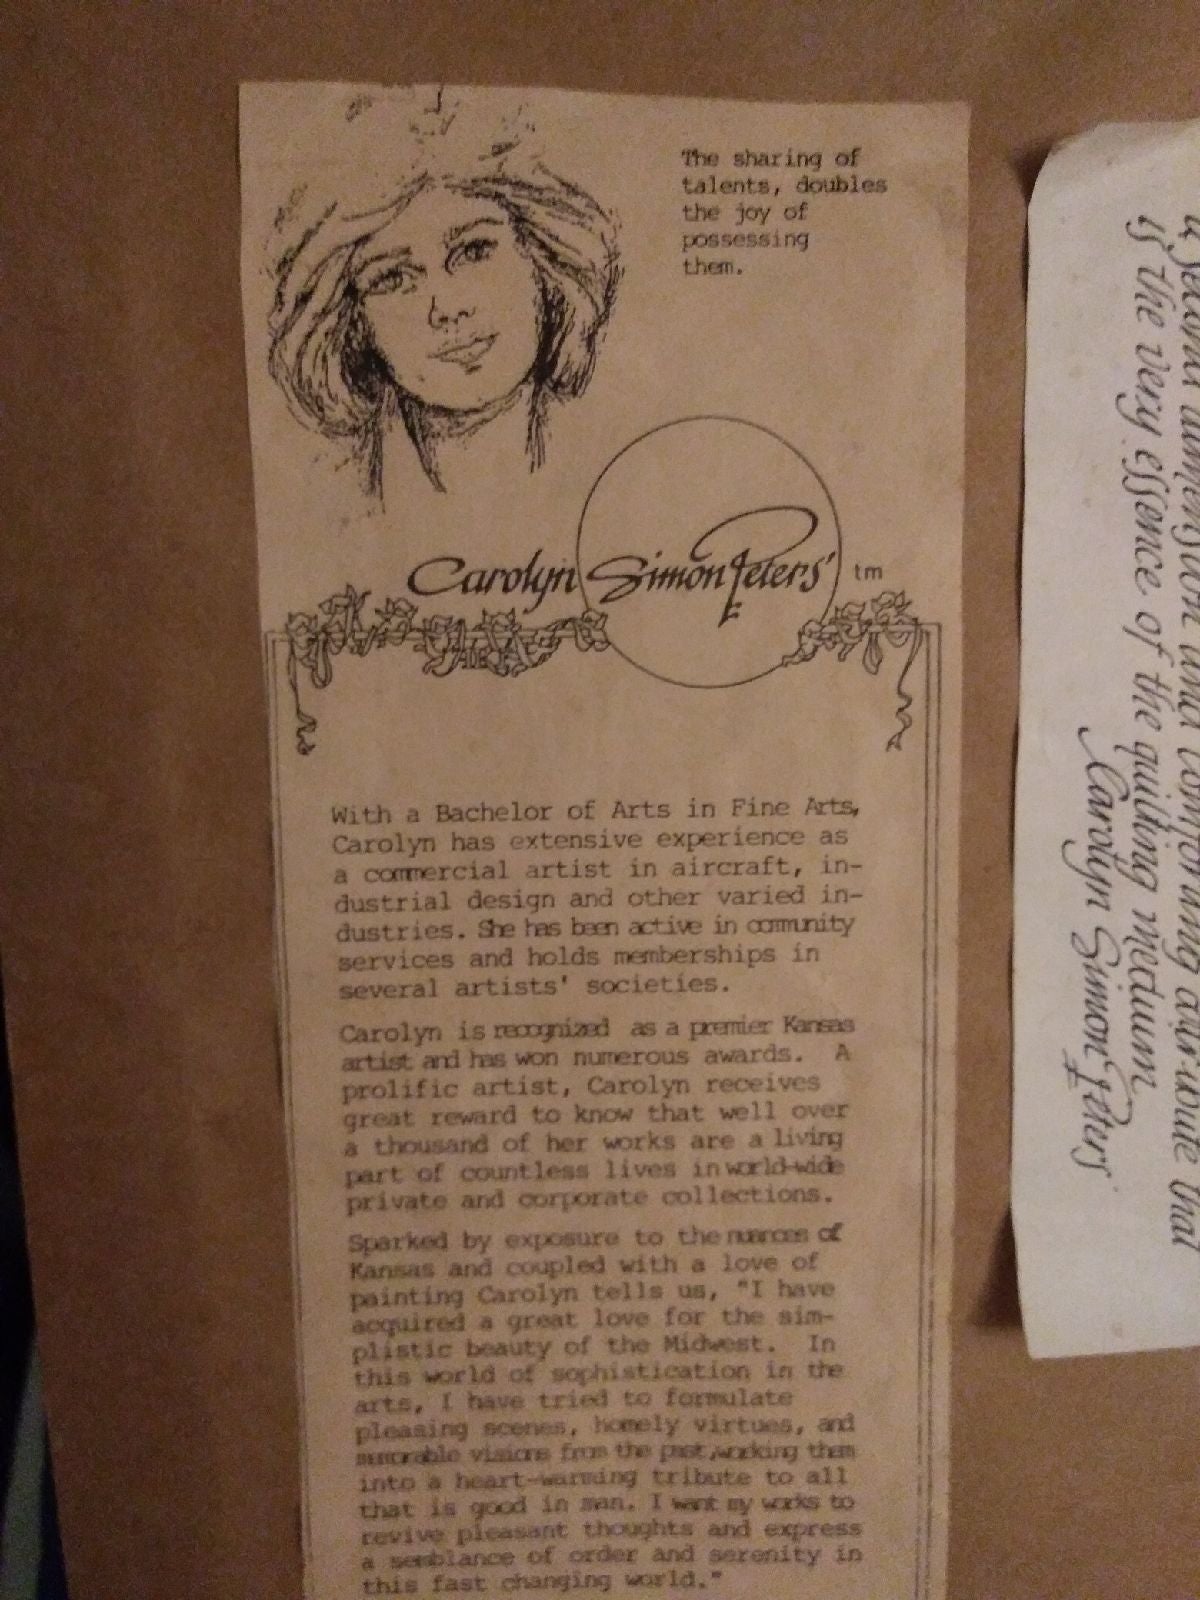 The sharing of
talents, doubles
the joy of
possessing
them.
Carolyn Simon Peters' tm
With a Bachelor of Arts in Fine Arts,
Carolyn has extensive experience as
a commercial artist in aircraft, in-
dustrial design and other varied in-
dustries. She has been active in community
services and holds memberships in
several artists' societies.
Carolyn is recognized as a premier Kansas
artist and has won numerous awards. A
prolific artist, Carolyn receives
great reward to know that well over
a thousand of her works are a living
part of countless lives in world-wide
private and corporate collections.
Sparked by exposure to the nuances of
Kansas and coupled with a love of
painting Carolyn tells us, "I have
acquired a great love for the sim-
plistic beauty of the Midwest. In
this world of sophistication in the
arts, I have tried to formulate
pleasing scenes, homely virtues, and
memorable visions from the past, working them
into a heart-warming tribute to all
that is good in man. I want my works to
revive pleasant thoughts and express
a semblance of order and serenity in
this fast changing world."
a second dimension and comforting attitude that
is the very essence of the quilting medium.
Carolyn Simon Peters'